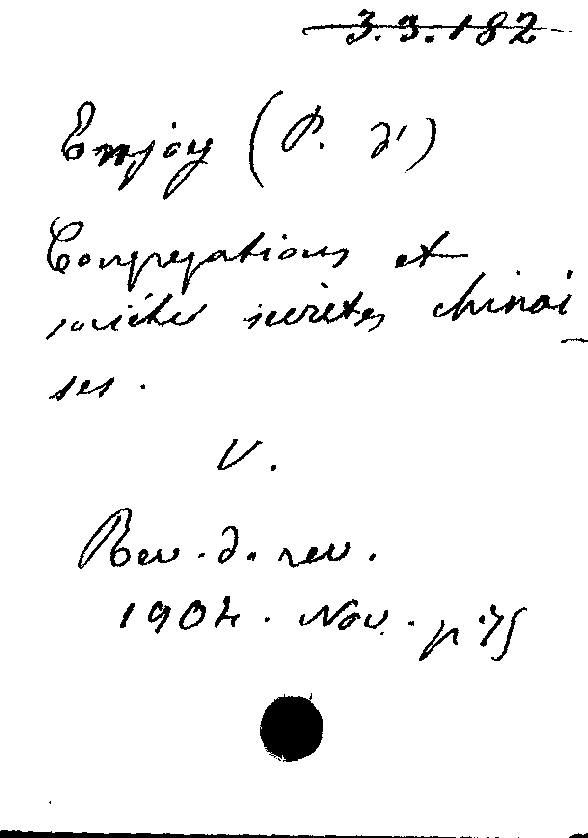 3.3.182
Enjoy (P. d')
Congregations et
sociétés secrètes chinoi
ses.
V.
Rev. d. rev.
1904. Nov. p 75